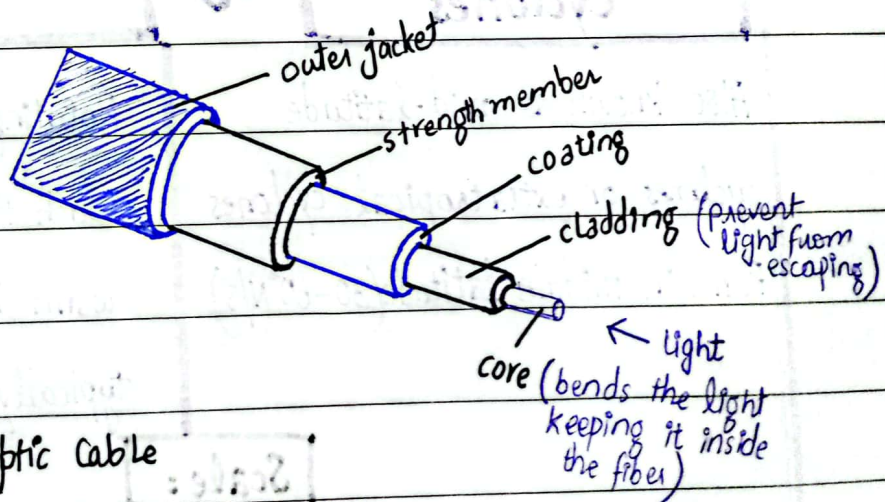 outer jacket
strength member
coating
cladding (prevent
light from
escaping)
light
core (bends the light
keeping it inside
the fiber)
ptic Cable